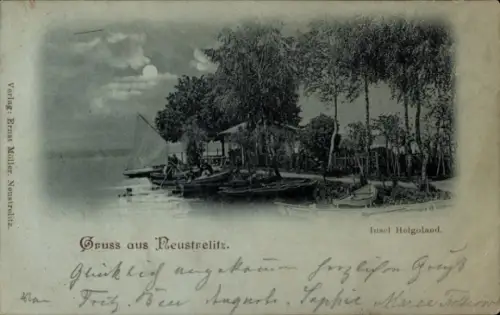 Verlag: Ernst Müller, Neustrelitz.
Insel Helgoland.
Gruss aus Neustrelitz.
Glücklich angekommen herzlichen Gruß
Fritz, Auguste, Sophie